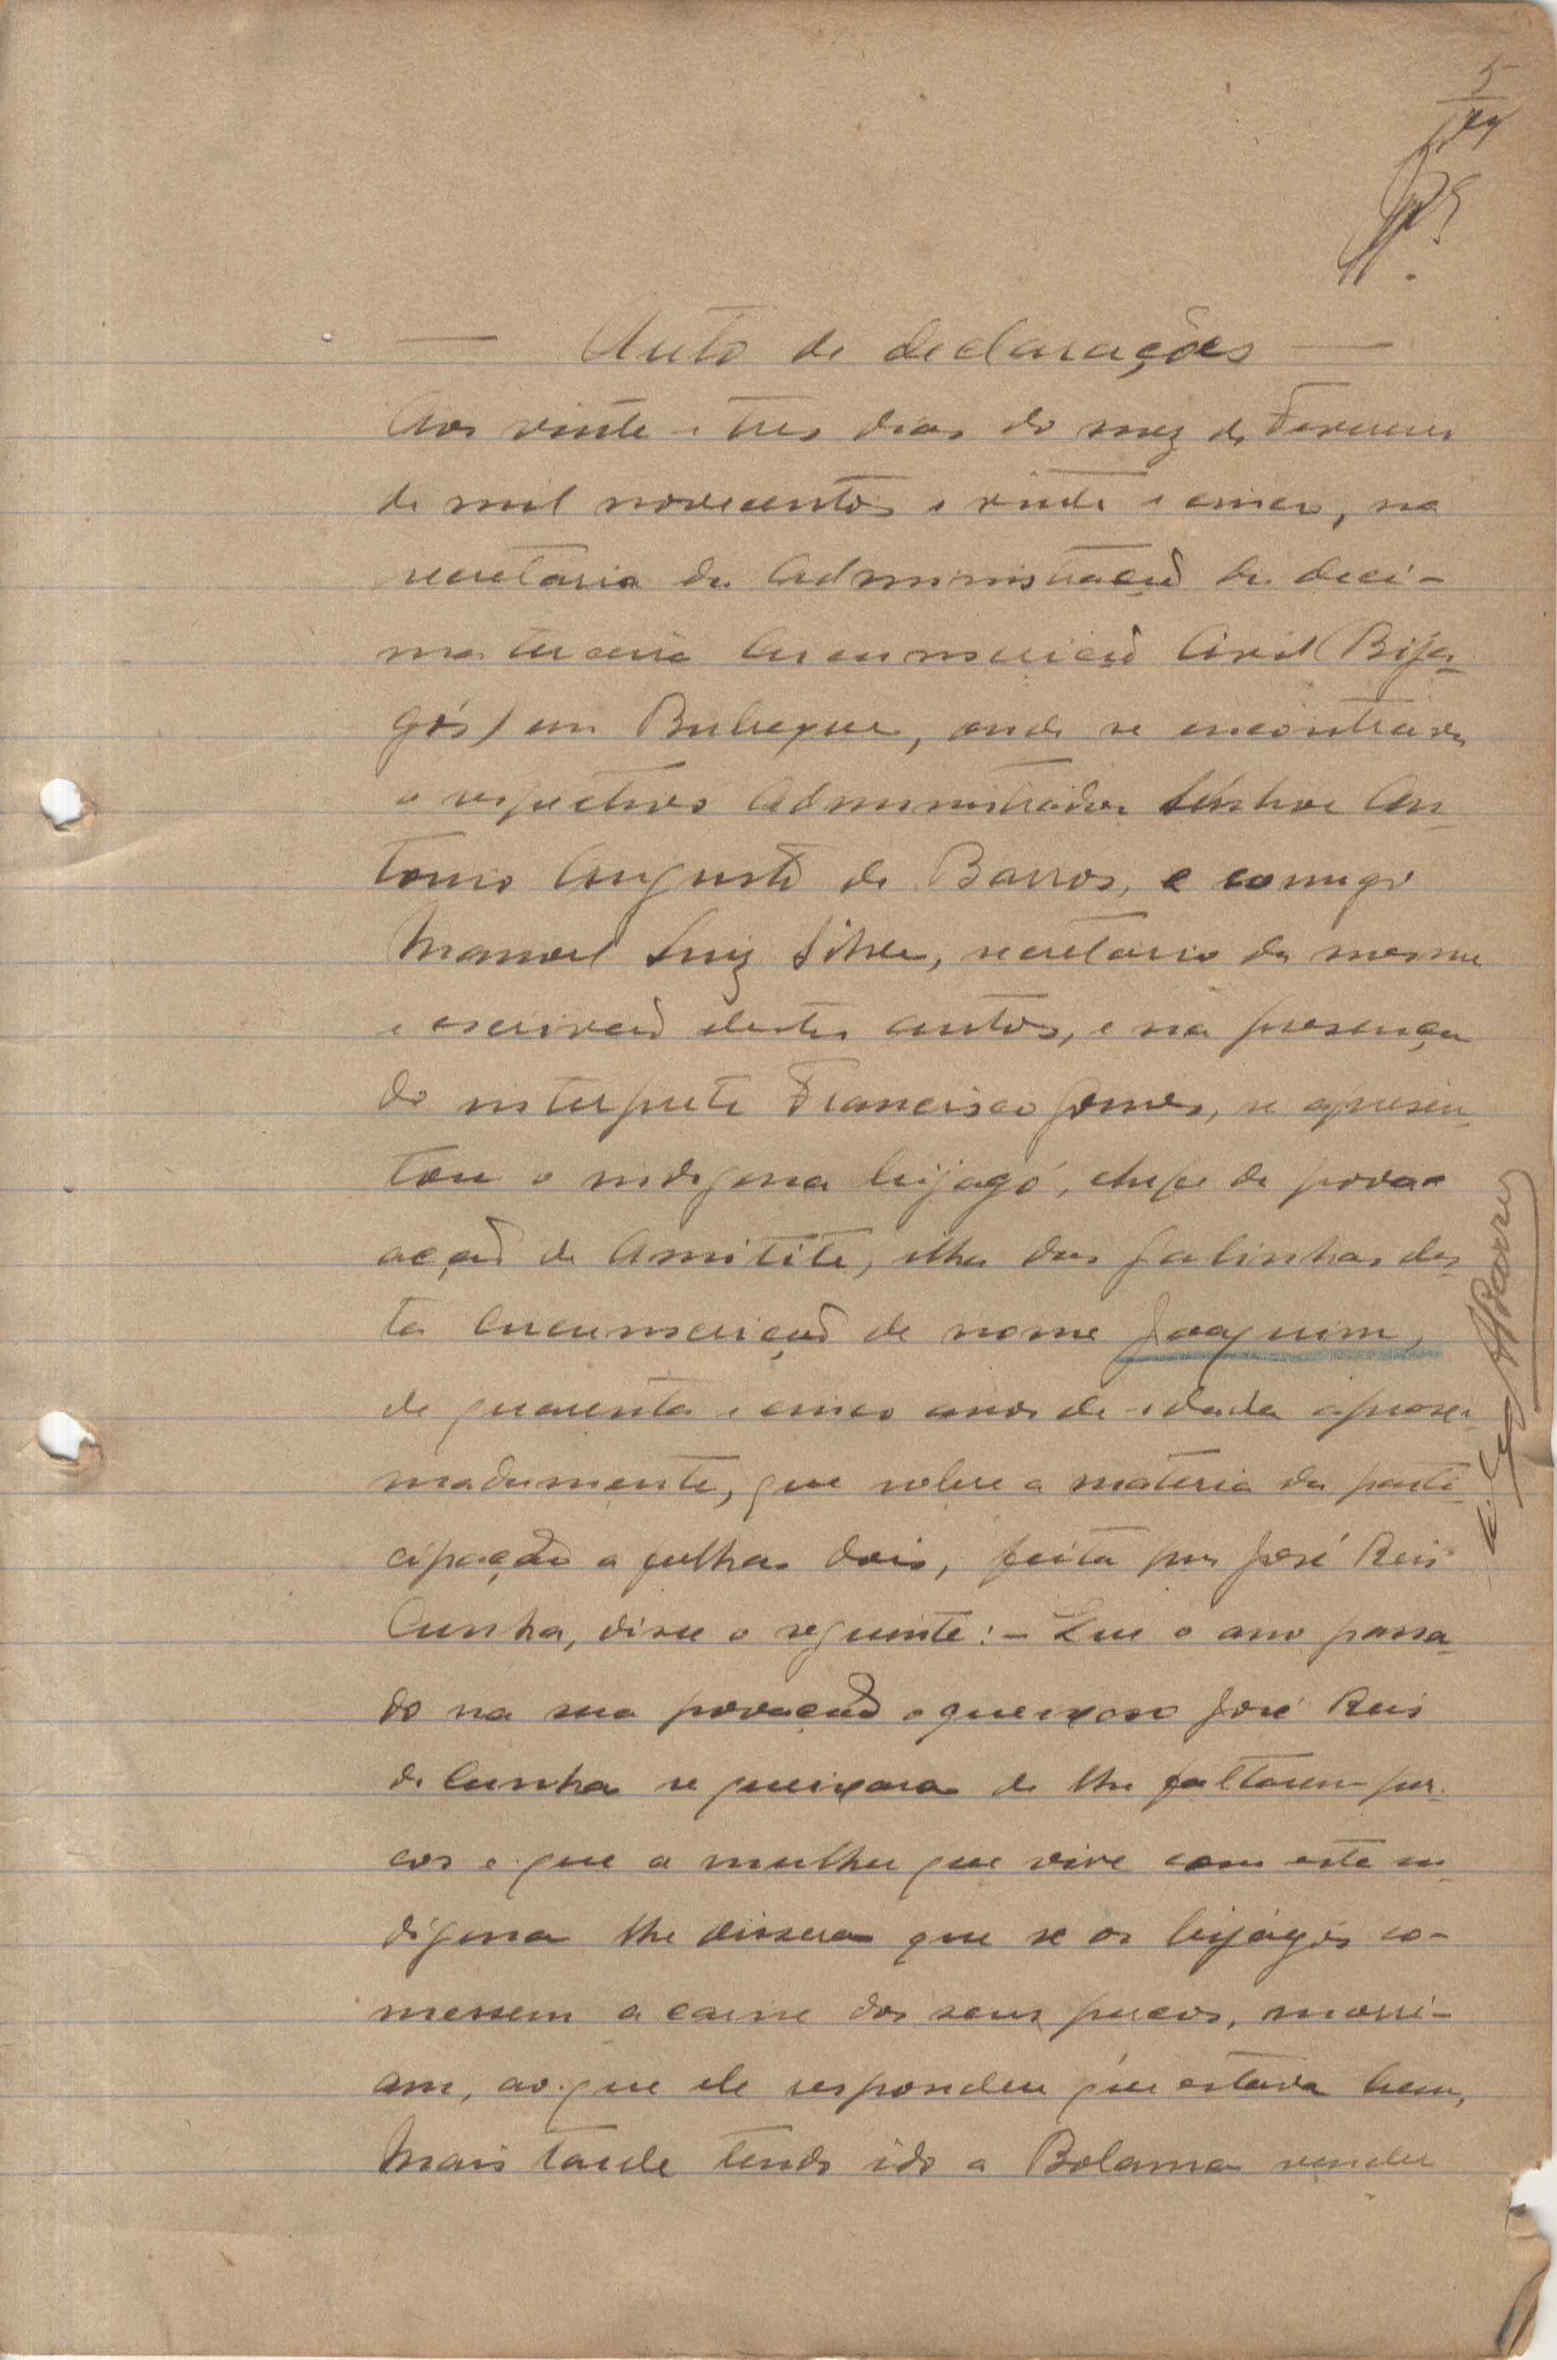 5
— Auto de declarações —
Aos vinte e tres dias do mez de Fevereiro
de mil novecentos e vinte e cinco, na
secretaria da Administração da deci-
ma terceira Circunscrição Civil (Bija-
gós) em Bubaque, onde se encontrava
o respectivo Administrador Senhor An-
tonio Augusto de Barros, e comigo
Manoel Luiz Silva, secretario da mesma
e escrivão destes autos, e na presença
do interprete Francisco Gomes, se apresen-
tou o indigena bijagó, chefe da povo-
ação de Amitite, ilha das Galinhas des-
ta Circunscrição de nome Joaquim,
de quarenta e cinco anos de idade aproxi-
madamente, que sobre a materia da parti-
cipação a folhas dois, feita por José Reis
Cunha, disse o seguinte: - Que o ano passa-
do na sua povoação o queixoso José Reis
da Cunha se queixara de lhe faltarem por-
cos e que a mulher que vive com este in-
digena lhe dissera que se os bijagós co-
messem a carne dos seus porcos, morri-
am, ao que ele respondeu que estava bem,
Mais tarde tendo ido a Bolama vender
ABarros